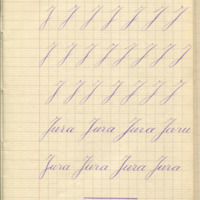 J J J J J J J
J J J J J J J J
J J J J J J J
Jura Jura Jura
Jura Jura Jura Jura